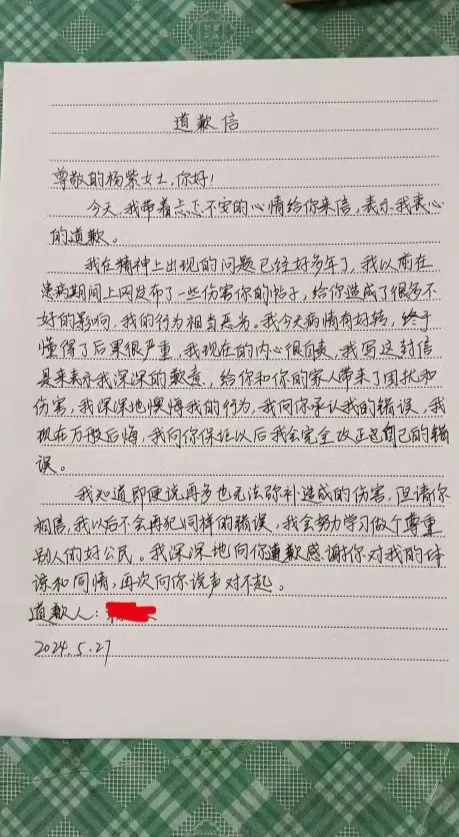 道歉信
尊敬的杨紫女士,你好!
今天,我带着忐忑不安的心情给你来信,表示我衷心
的道歉。
我在精神上出现的问题已经好多年了,我以前在
患病期间上网发布了一些伤害你的帖子,给你造成了很多不
好的影响,我的行为相当恶劣。我今天病情有好转,终于
懂得了后果很严重,我现在的内心很自责,我写这封信
是来表示我深深的歉意,给你和你的家人带来了困扰和
伤害,我深深地懊悔我的行为,我向你承认我的错误,我
现在万般后悔,我向你保证以后我会完全改正自己的错
误。
我知道即便说再多也无法弥补造成的伤害,但请你
相信,我以后不会再犯同样的错误,我会努力学习做个尊重
别人的好公民。我深深地向你道歉感谢你对我的体
谅和同情,再次向你说声对不起。
道歉人:
2024.5.27